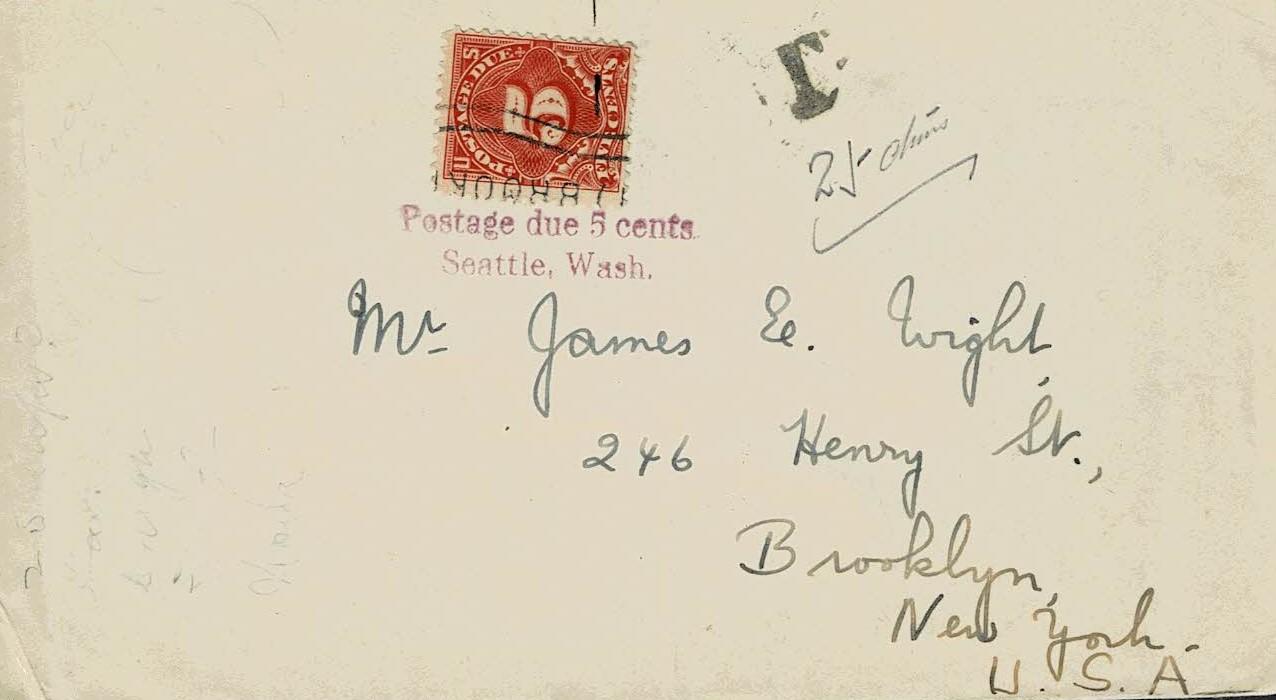 POSTAGE DUE
5
CENTS
Postage due 5 cents.
Seattle, Wash.
T
25
Mr James E. Wight,
246 Henry St.,
Brooklyn,
New York.
U.S.A